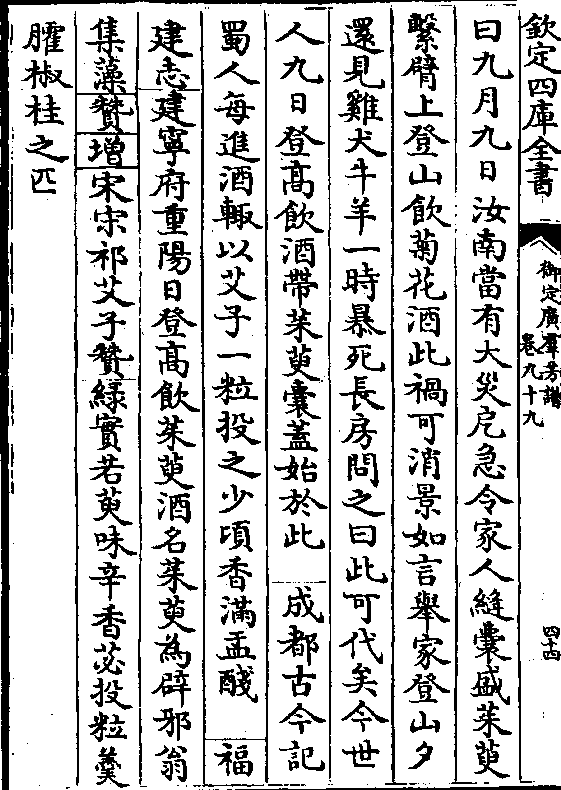 欽定四庫全書
御定廣羣芳譜
卷九十九
四十四
曰九月九日汝南當有大災厄急令家人縫囊盛茱萸
繫臂上登山飲菊花酒此禍可消景如言舉家登山夕
還見雞犬牛羊一時暴死長房聞之曰此可代矣今世
人九日登高飲酒帶茱萸囊蓋始於此 成都古今記
蜀人每進酒輙以艾子一粒投之少頃香滿盂醆 福
建志建寧府重陽日登高飲茱萸酒名茱萸為辟邪翁
集藻贊增宋宋祁艾子贊緑實若萸味辛香苾投粒羹
臛椒桂之匹